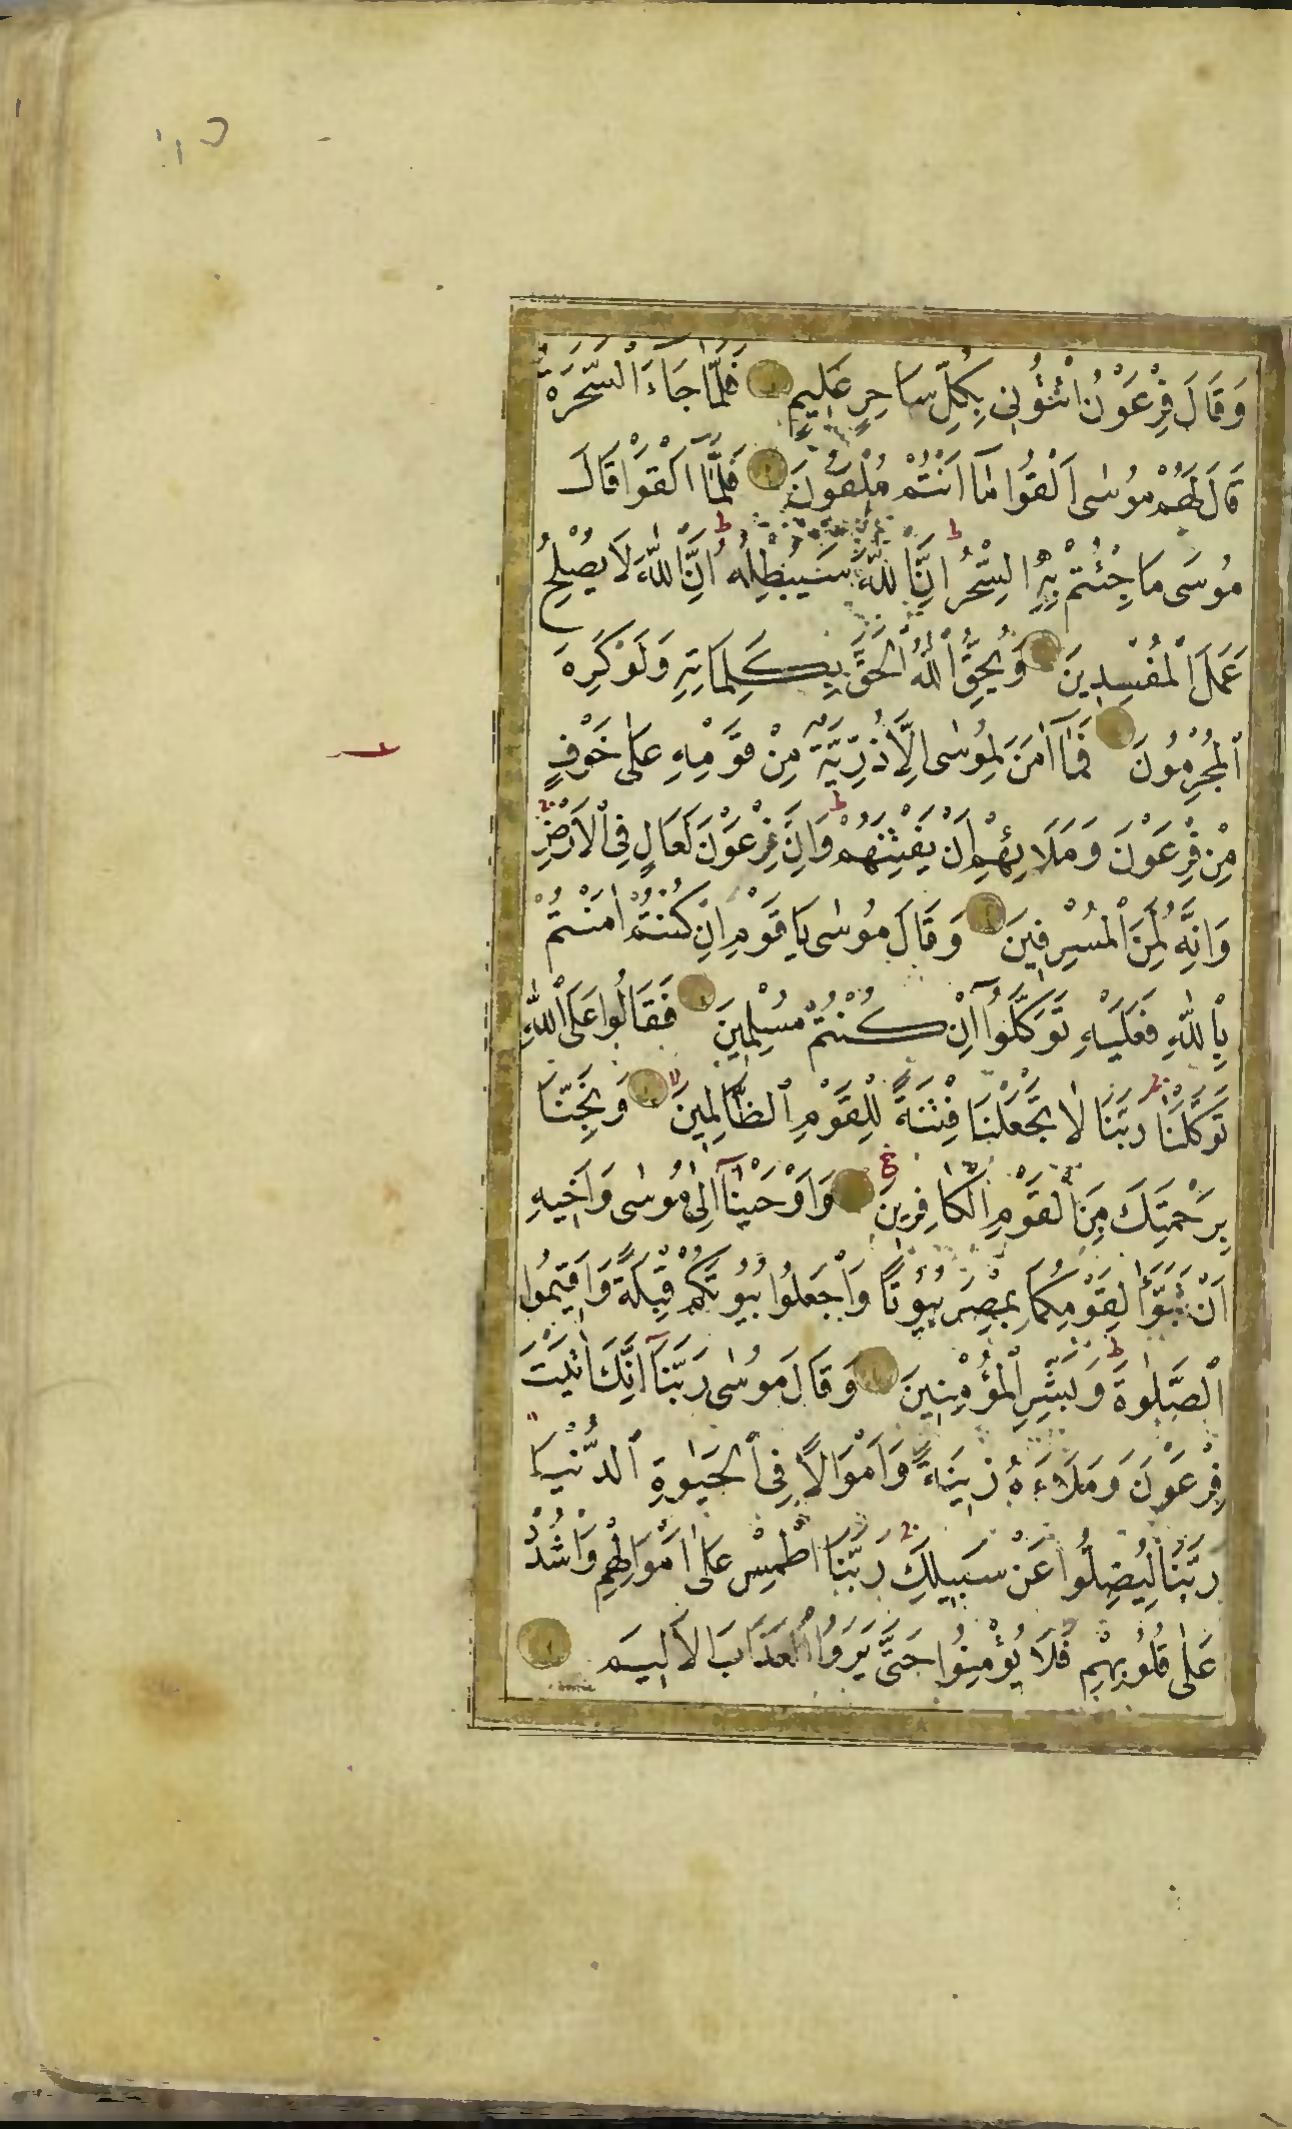 وَقَالَ فِرْعَوْنُ ائْتُونِي بِكُلِّ سَاحِرٍ عَلِيمٍ فَلَمَّا جَاءَ السَّحَرَةُ
قَالَ لَهُمْ مُوسٰى اَلْقُوا مَا اَنْتُمْ مُلْقُونَ فَلَمَّا اَلْقَوْا قَالَ
مُوسٰى مَا جِئْتُمْ بِهِ السِّحْرُ ط اِنَّ اللّٰهَ سَيُبْطِلُهُ ط اِنَّ اللّٰهَ لَا يُصْلِحُ
عَمَلَ الْمُفْسِدِينَ وَيُحِقُّ اللّٰهُ الْحَقَّ بِكَلِمَاتِهِ وَلَوْ كَرِهَ
الْمُجْرِمُونَ فَمَا اٰمَنَ لِمُوسٰى اِلَّا ذُرِّيَّةٌ مِنْ قَوْمِهِ عَلٰى خَوْفٍ
مِنْ فِرْعَوْنَ وَمَلَائِهِمْ اَنْ يَفْتِنَهُمْ ط وَاِنَّ فِرْعَوْنَ لَعَالٍ فِي الْاَرْضِ
وَاِنَّهُ لَمِنَ الْمُسْرِفِينَ وَقَالَ مُوسٰى يَا قَوْمِ اِنْ كُنْتُمْ اٰمَنْتُمْ
بِاللّٰهِ فَعَلَيْهِ تَوَكَّلُوا اِنْ كُنْتُمْ مُسْلِمِينَ فَقَالُوا عَلَى اللّٰهِ
تَوَكَّلْنَا رَبَّنَا لَا تَجْعَلْنَا فِتْنَةً لِلْقَوْمِ الظَّالِمِينَ لا وَنَجِّنَا
بِرَحْمَتِكَ مِنَ الْقَوْمِ الْكَافِرِينَ ع وَاَوْحَيْنَا اِلٰى مُوسٰى وَاَخِيهِ
اَنْ تَبَوَّا لِقَوْمِكُمَا بِمِصْرَ بُيُوتًا وَاجْعَلُوا بُيُوتَكُمْ قِبْلَةً وَاَقِيمُوا
الصَّلٰوةَ ط وَبَشِّرِ الْمُؤْمِنِينَ وَقَالَ مُوسٰى رَبَّنَا اِنَّكَ اٰتَيْتَ
فِرْعَوْنَ وَمَلَاَءَهُ زِينَةً وَاَمْوَالًا فِي الْحَيٰوةِ الدُّنْيَا
رَبَّنَا لِيُضِلُّوا عَنْ سَبِيلِكَ رَبَّنَا اطْمِسْ عَلٰى اَمْوَالِهِمْ وَاشْدُدْ
عَلٰى قُلُوبِهِمْ فَلَا يُؤْمِنُوا حَتّٰى يَرَوُا الْعَذَابَ الْاَلِيمَ